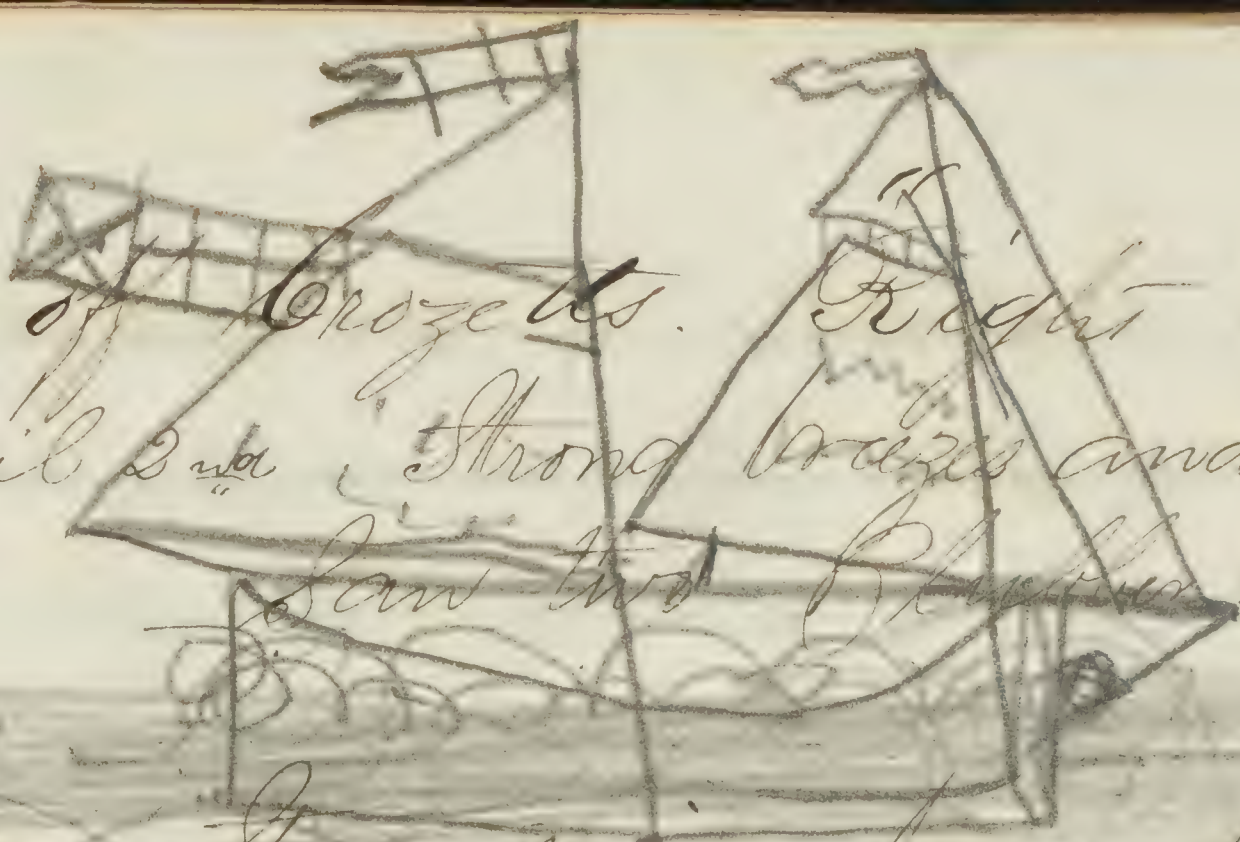 of Crozetts. Right
il 2nd. Strong breezes and
Saw two